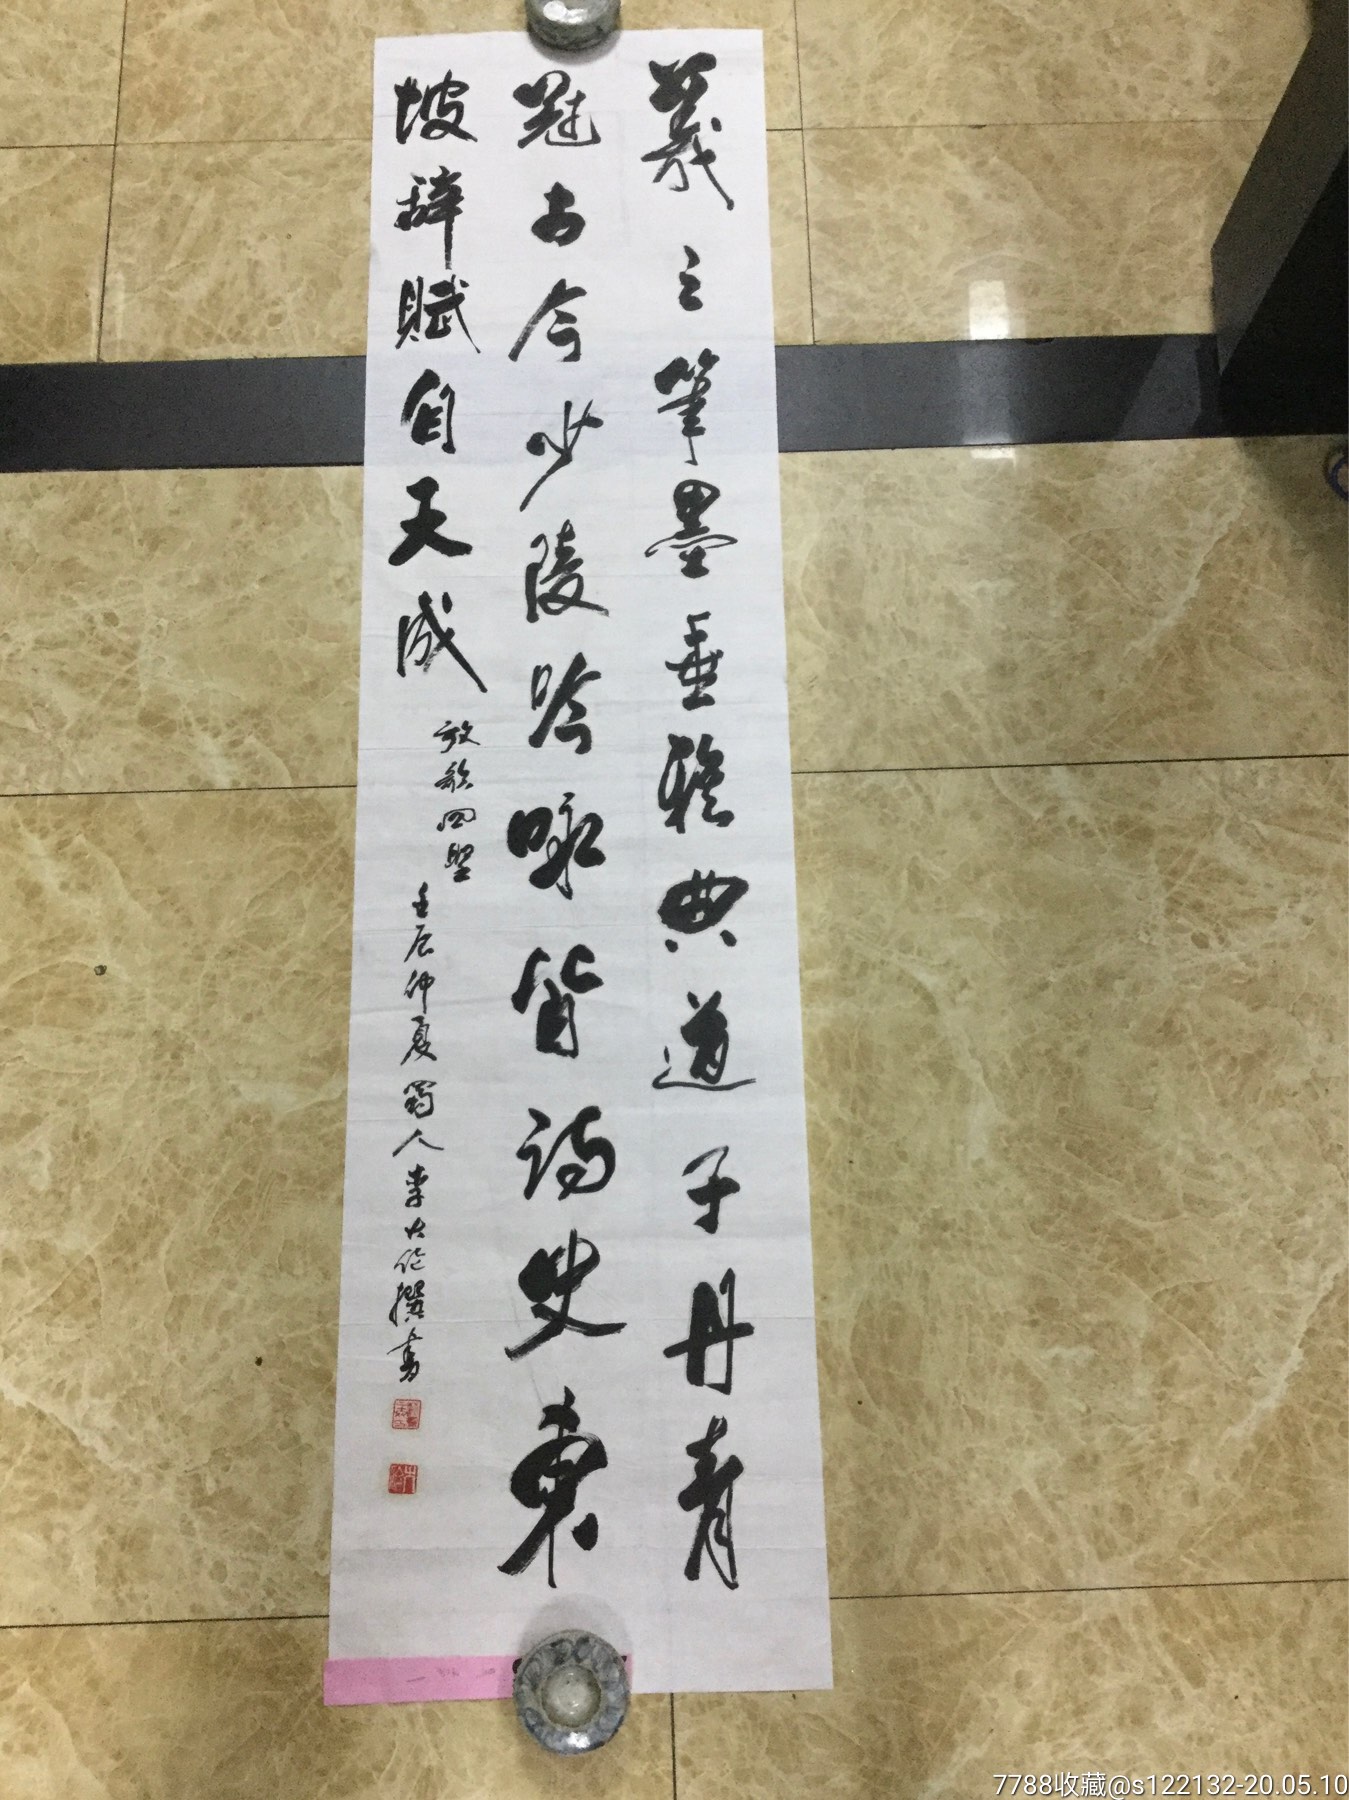 羲之筆墨垂雅典道子丹青
冠古今少陵吟咏皆诗史東
坡辞賦自天成
放歌四聖
壬辰仲夏蜀人李大伦撰書
7788收藏@s122132-20.05.10